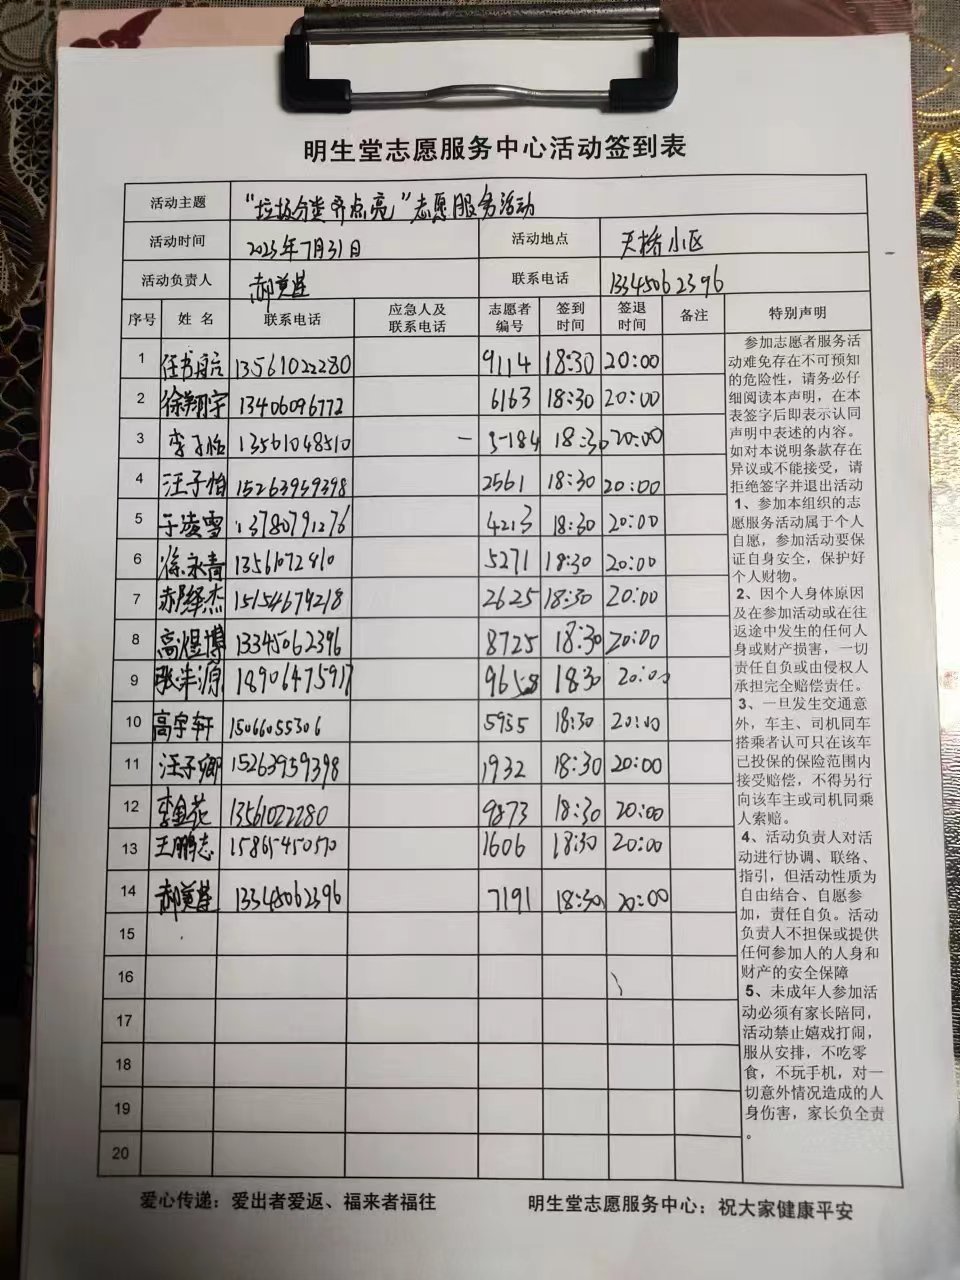 明生堂志愿服务中心活动签到表
活动主题 "垃圾分类齐点亮"志愿服务活动
活动时间 2023年7月31日 活动地点 天桥小区
活动负责人 郝 联系电话 13345062396
序号 姓名 联系电话 应急人及联系电话 志愿者编号 签到时间 签退时间 备注 特别声明
1 任书 13561022280 9114 18:30 20:00
2 徐翔宇 13406096772 6163 18:30 20:00
3 李子怡 13561048510 5184 18:30 20:00
4 汪子怡 15263959398 2561 18:30 20:00
5 于凌雪 13780791276 4213 18:30 20:00
6 徐永青 13561072810 5271 18:30 20:00
7 郝绎杰 15154679218 2625 18:30 20:00
8 高煜博 13345062396 8725 18:30 20:00
9 张沣源 18906475917 9658 18:30 20:00
10 高宇轩 15066055306 5935 18:30 20:00
11 汪子卿 15263959398 1932 18:30 20:00
12 李金花 13561022280 9873 18:30 20:00
13 王鹏志 15865450570 1606 18:30 20:00
14 郝 13345062396 7191 18:30 20:00
15
16
17
18
19
20
参加志愿者服务活
动难免存在不可预知
的危险性，请务必仔
细阅读本声明，在本
表签字后即表示认同
声明中表述的内容。
如对本说明条款存在
异议或不能接受，请
拒绝签字并退出活动
1、参加本组织的志
愿服务活动属于个人
自愿，参加活动要保
证自身安全，保护好
个人财物。
2、因个人身体原因
及在参加活动或在往
返途中发生的任何人
身或财产损害，一切
责任自负或由侵权人
承担完全赔偿责任。
3、一旦发生交通意
外，车主、司机同车
搭乘者认可只在该车
已投保的保险范围内
接受赔偿，不得另行
向该车主或司机同乘
人索赔。
4、活动负责人对活
动进行协调、联络、
指引，但活动性质为
自由结合、自愿参
加，责任自负。活动
负责人不担保或提供
任何参加人的人身和
财产的安全保障
5、未成年人参加活
动必须有家长陪同，
活动禁止嬉戏打闹，
服从安排，不吃零
食，不玩手机，对一
切意外情况造成的人
身伤害，家长负全责
。
爱心传递：爱出者爱返、福来者福往 明生堂志愿服务中心：祝大家健康平安